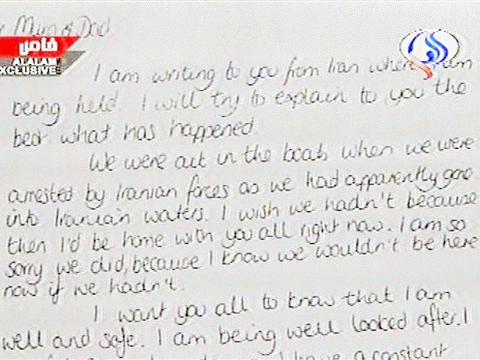 خاص
ALALAM
EXCLUSIVE
Mum & Dad
I am writing to you from Iran where I am
being held. I will try to explain to you the
best what has happened.
We were out in the boats when we were
arrested by Iranian forces as we had apparently gone
into Iranian waters. I wish we hadn't because
then I'd be home with you all right now. I am so
sorry we did, because I know we wouldn't be here
now if we hadn't.
I want you all to know that I am
well and safe. I am being well looked after. I
have a constant